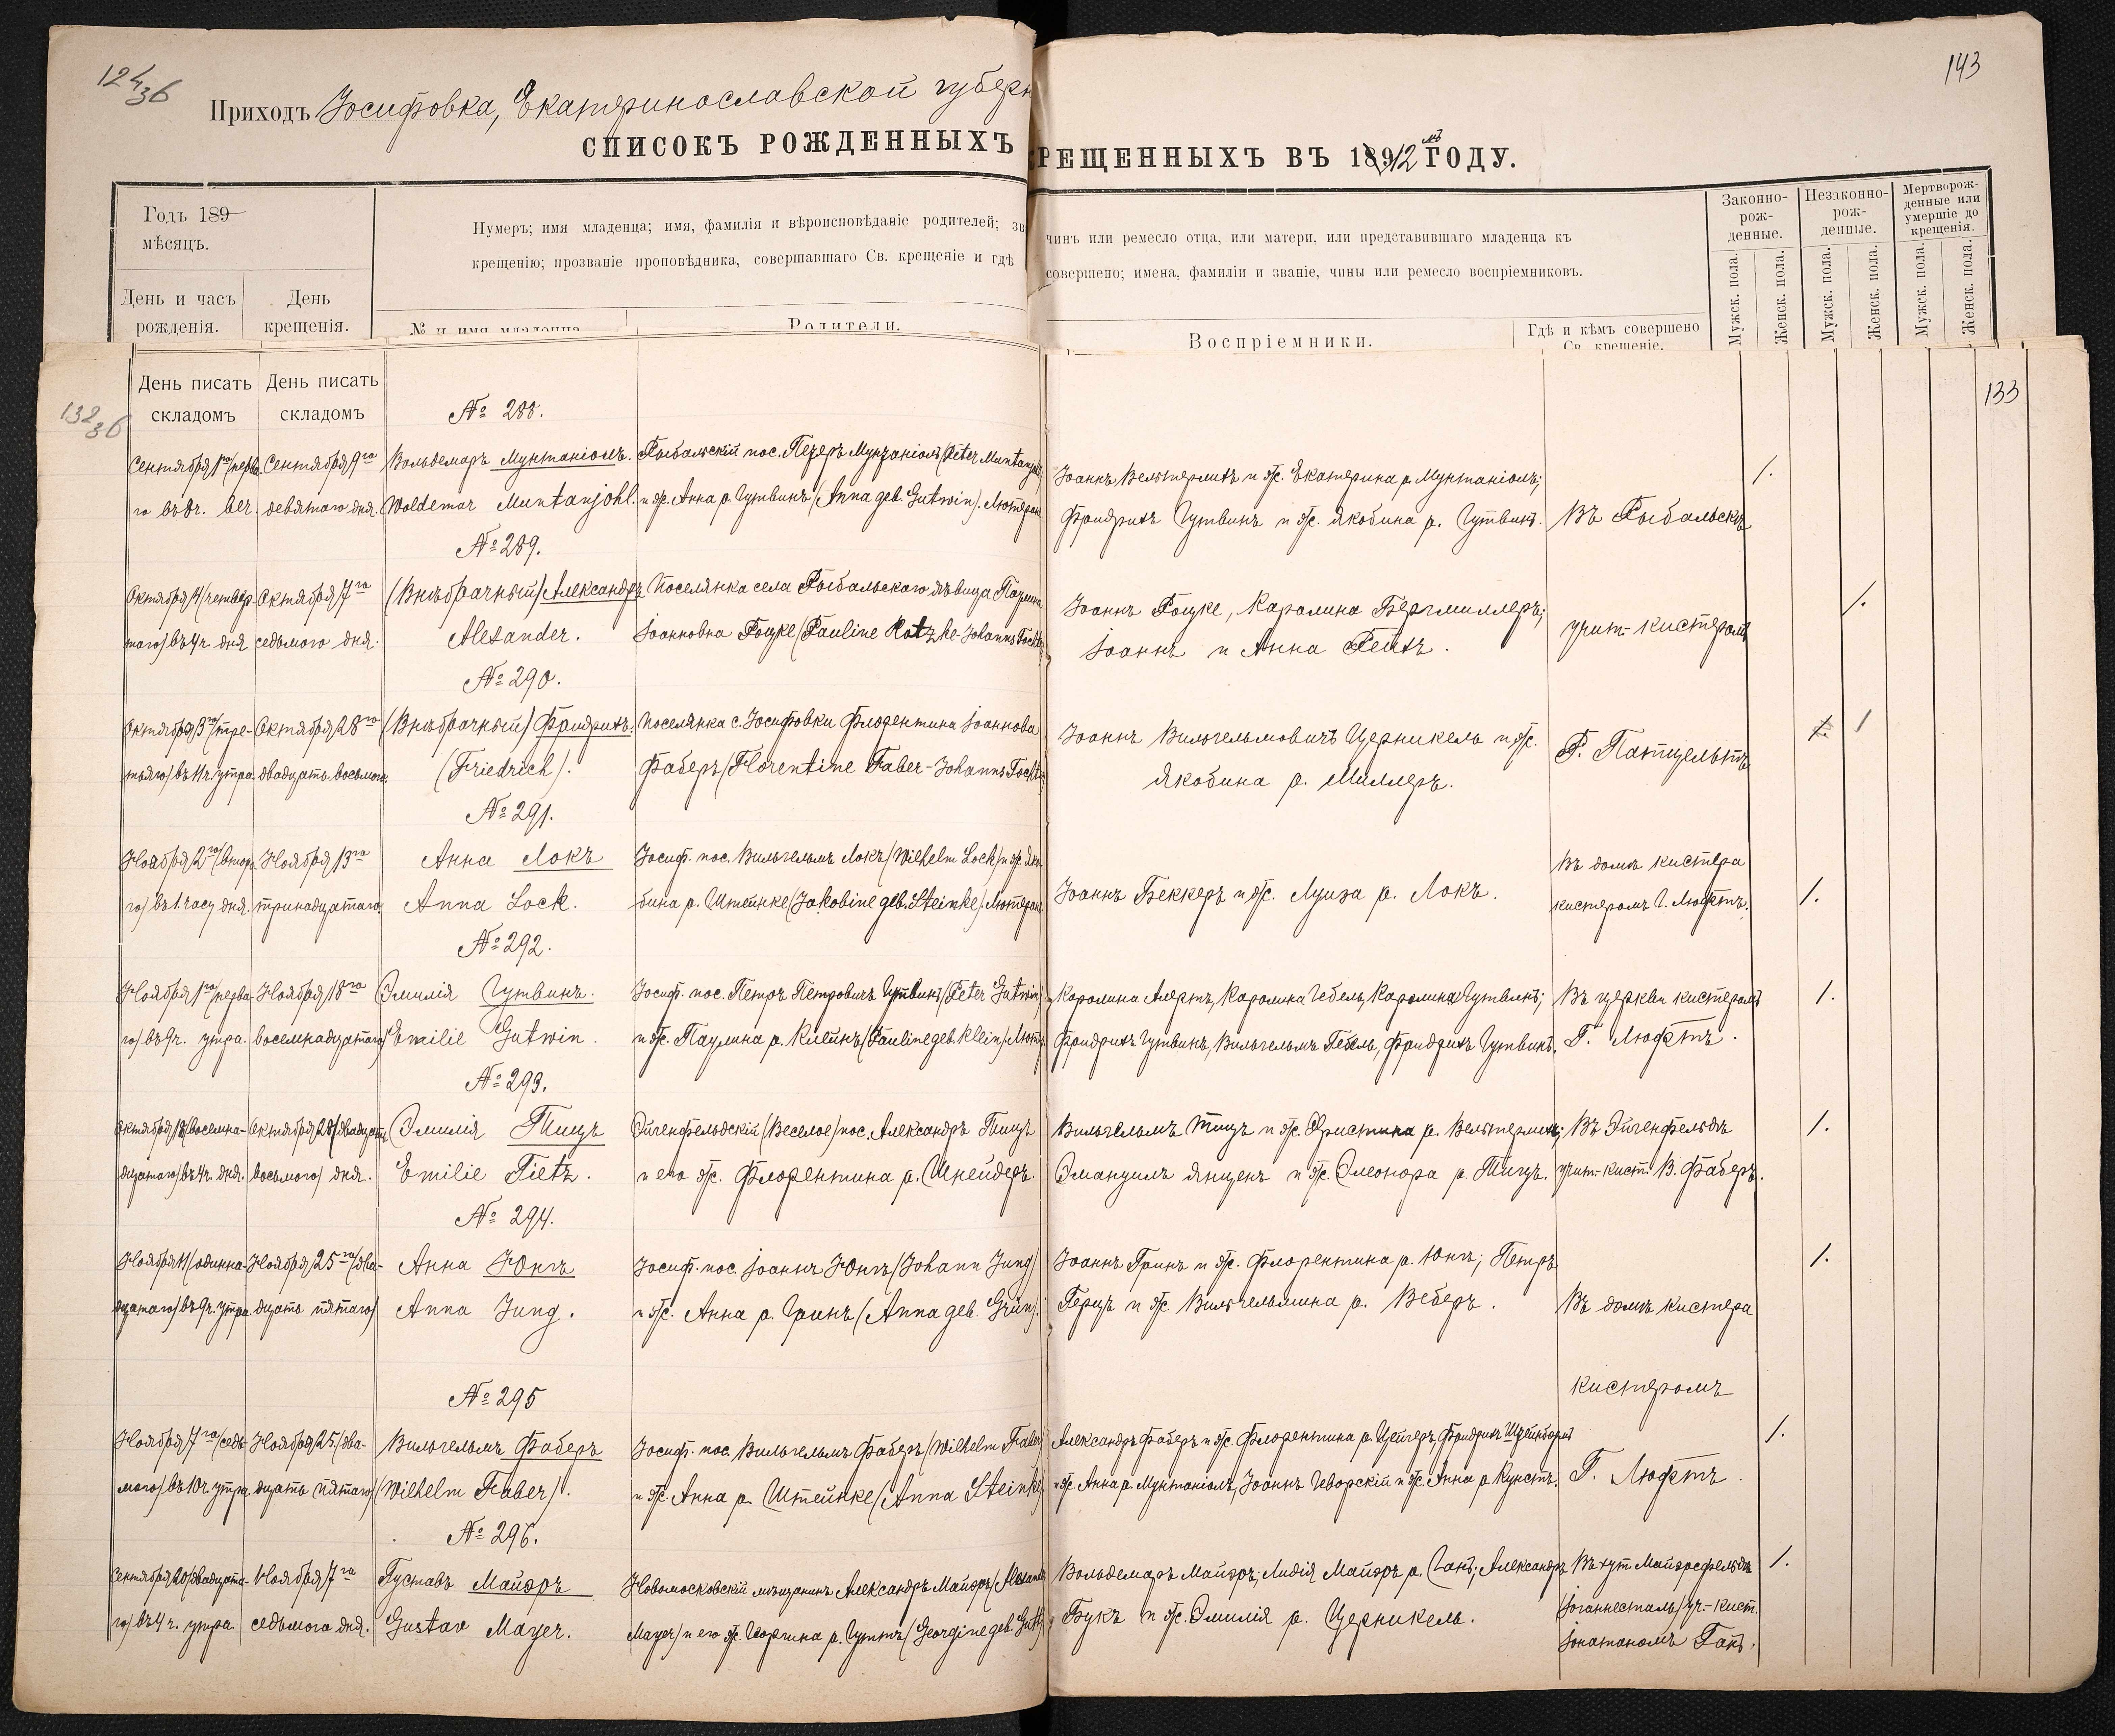 124/36
143
Приходъ Іосифовка, Екатеринославской губерн
СПИСОКЪ РОЖДЕННЫХЪ
РЕЩЕННЫХЪ ВЪ 1912мъ ГОДУ.
Годъ 189
мѣсяцъ.
Нумеръ; имя младенца; имя, фамилія и вѣроисповѣданіе родителей; зв
чинъ или ремесло отца, или матери, или представившаго младенца къ
крещенію; прозваніе проповѣдника, совершавшаго Св. крещеніе и гдѣ
совершено; имена, фамиліи и званіе, чины или ремесло воспріемниковъ.
Законно-
рож-
денные.
Незаконно-
рож-
денные.
Мертворож-
денные или
умершіе до
крещенія.
Мужск. пола.
Женск. пола.
Мужск. пола.
Женск. пола.
Мужск. пола.
Женск. пола.
День и часъ
рожденія.
День
крещенія.
№ и имя младенца
Родители.
Воспріемники.
Гдѣ и кѣмъ совершено
Св. крещеніе.
132/36
133
День писать
складомъ
День писать
складомъ
№ 288.
Сентября 1го/перва-
го въ 8ч. веч.
Сентября 9го
девятаго дня.
Вольдемаръ Мунтаніолъ.
Woldemar Muntanjohl.
Рыбальскій пос. Петеръ Мунтаніолъ (Peter Muntanjohl
и ж. Анна р. Гутвинъ (Anna geb. Gutwin). Лютеран
Іоаннъ Вельтерлихъ и ж. Екатерина р. Мунтаніолъ;
Фридрихъ Гутвинъ и ж. Якобина р. Гутвинъ.
Въ Рыбальскѣ
1.
№ 289.
Октября 4/четвер-
таго) въ 4ч. дня
Октября 7го
седьмого дня.
(Внѣбрачный) Александръ
Alexander.
Поселянка села Рыбальскаго дѣвица Паулина
Іоанновна Роцке (Pauline Rotzke-Johanns Tocht
Іоаннъ Роцке, Каролина Бергмиллеръ;
Іоаннъ и Анна Рейхъ.
учит-кистеромъ
1.
№ 290.
Октября 3го/тре-
тьяго) въ 11ч. утра
Октября 28го
двадцать восьмого
(Внѣбрачный) Фридрихъ.
(Friedrich).
Поселянка с. Іосифовки Флорентина Іоаннова
Фаберъ (Florentine Faber-Johanns Tocht
Іоаннъ Вильгельмовичъ Церникель и ж.
Якобина р. Миллеръ.
Р. Патцельтъ
1
№ 291.
Ноября 2го/второ-
го) въ 1. часу дня.
Ноября 13го
тринадцатаго
Анна Локъ
Anna Lock.
Іосиф. пос. Вильгельмъ Локъ (Wilhelm Lock) и ж. Яко-
бина р. Штейнке (Jakobine geb. Steinke). Лютеран
Іоаннъ Беккеръ и ж. Луиза р. Локъ.
Въ домѣ кистера
кистеромъ Г. Люфтъ.
1.
№ 292.
Ноября 1го/перва-
го) въ 9ч. утра.
Ноября 18го
восемнадцатаго
Эмилія Гутвинъ.
Emilie Gutwin.
Іосиф. пос. Петръ Петровичъ Гутвинъ (Peter Gutwin)
и ж. Паулина р. Клейнъ (Pauline geb. Klein) Лют
Каролина Алертъ, Каролина Гебель, Каролина Гутвинъ;
Фридрихъ Гутвинъ, Вильгельмъ Гебель, Фридрихъ Гутвинъ.
Въ церкви кистеромъ
Г. Люфтъ.
1.
№ 293.
Октября 18/восемна-
дцатаго) въ 4ч. дня.
Октября 28/двадцать
восьмого) дня.
Эмилія Тицъ
Emilie Tietz.
Эйгенфельдскій (Веселое) пос. Александръ Тицъ
и его ж. Флорентина р. Шнейдеръ.
Вильгельмъ Тицъ и ж. Христина р. Вельтерлихъ;
Эмануилъ Янценъ и ж. Элеонора р. Тицъ.
Въ Эйгенфельдѣ
учит-кист. В. Фаберъ.
1.
№ 294.
Ноября 11/одинна-
дцатаго) въ 9ч. утра
Ноября 25го/два-
дцать пятаго)
Анна Юнгъ
Anna Jung.
Іосиф. пос. Іоаннъ Юнгъ (Johann Jung)
и ж. Анна р. Гринъ (Anna geb. Grün).
Іоаннъ Гринъ и ж. Флорентина р. Юнгъ; Петръ
Герцъ и ж. Вильгельмина р. Веберъ.
Въ домѣ кистера
1.
№ 295
кистеромъ
Ноября 7го/седь-
мого) въ 10ч. утра.
Ноября 25/два-
дцать пятаго)
Вильгельмъ Фаберъ
(Wilhelm Faber).
Іосиф. пос. Вильгельмъ Фаберъ (Wilhelm Faber)
и ж. Анна р. Штейнке (Anna Steinke)
Александръ Фаберъ и ж. Флорентина р. Цейгеръ, Фридрихъ
и ж. Анна р. Мунтаніолъ, Іоаннъ Геворскій и ж. Анна р. Кунстъ.
Г. Люфтъ.
1.
№ 296.
Сентября 20/двадцата-
го) въ 4 ч. утра.
Ноября 7го
седьмого дня.
Густавъ Майэръ
Gustav Mayer.
Новомосковскій мѣщанинъ Александръ Майэръ (Alexand
Mayer) и его ж. Георгина р. Гутъ (Georgine geb. Guth
Вольдемаръ Майэръ, Лидія Майэръ р. Ганъ; Александръ
Букъ и ж. Эмилія р. Церникель.
Въ хут. Майэрсфельдѣ
(Іоганнесталь) уч.-кист.
Іонатаномъ Ганъ.
1.